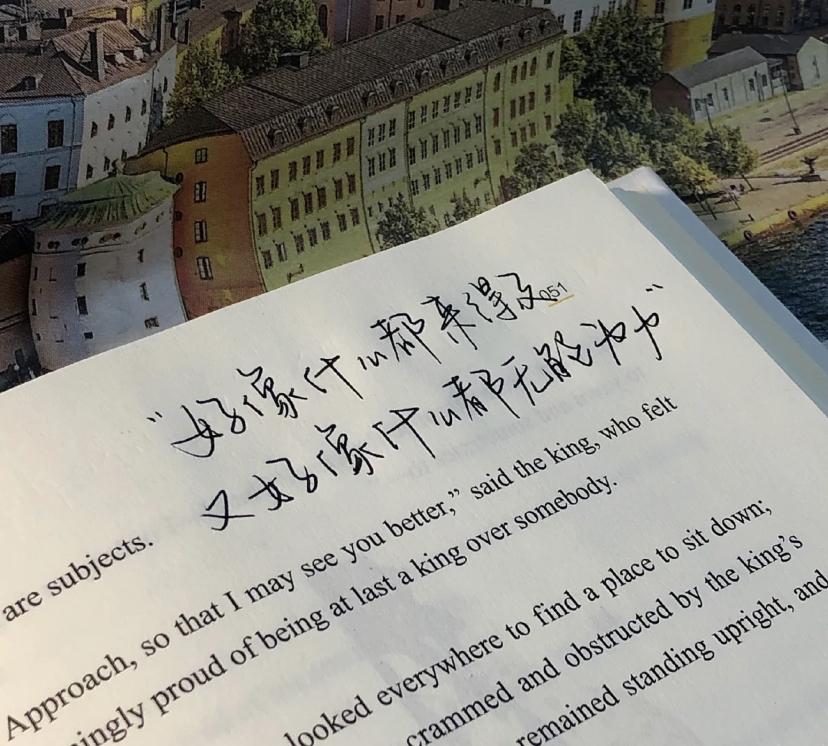 051
“好像什么都来得及
又好像什么都无能为力”
are subjects.
Approach, so that I may see you better,” said the king, who felt
ingly proud of being at last a king over somebody.
looked everywhere to find a place to sit down;
crammed and obstructed by the king’s
remained standing upright, and